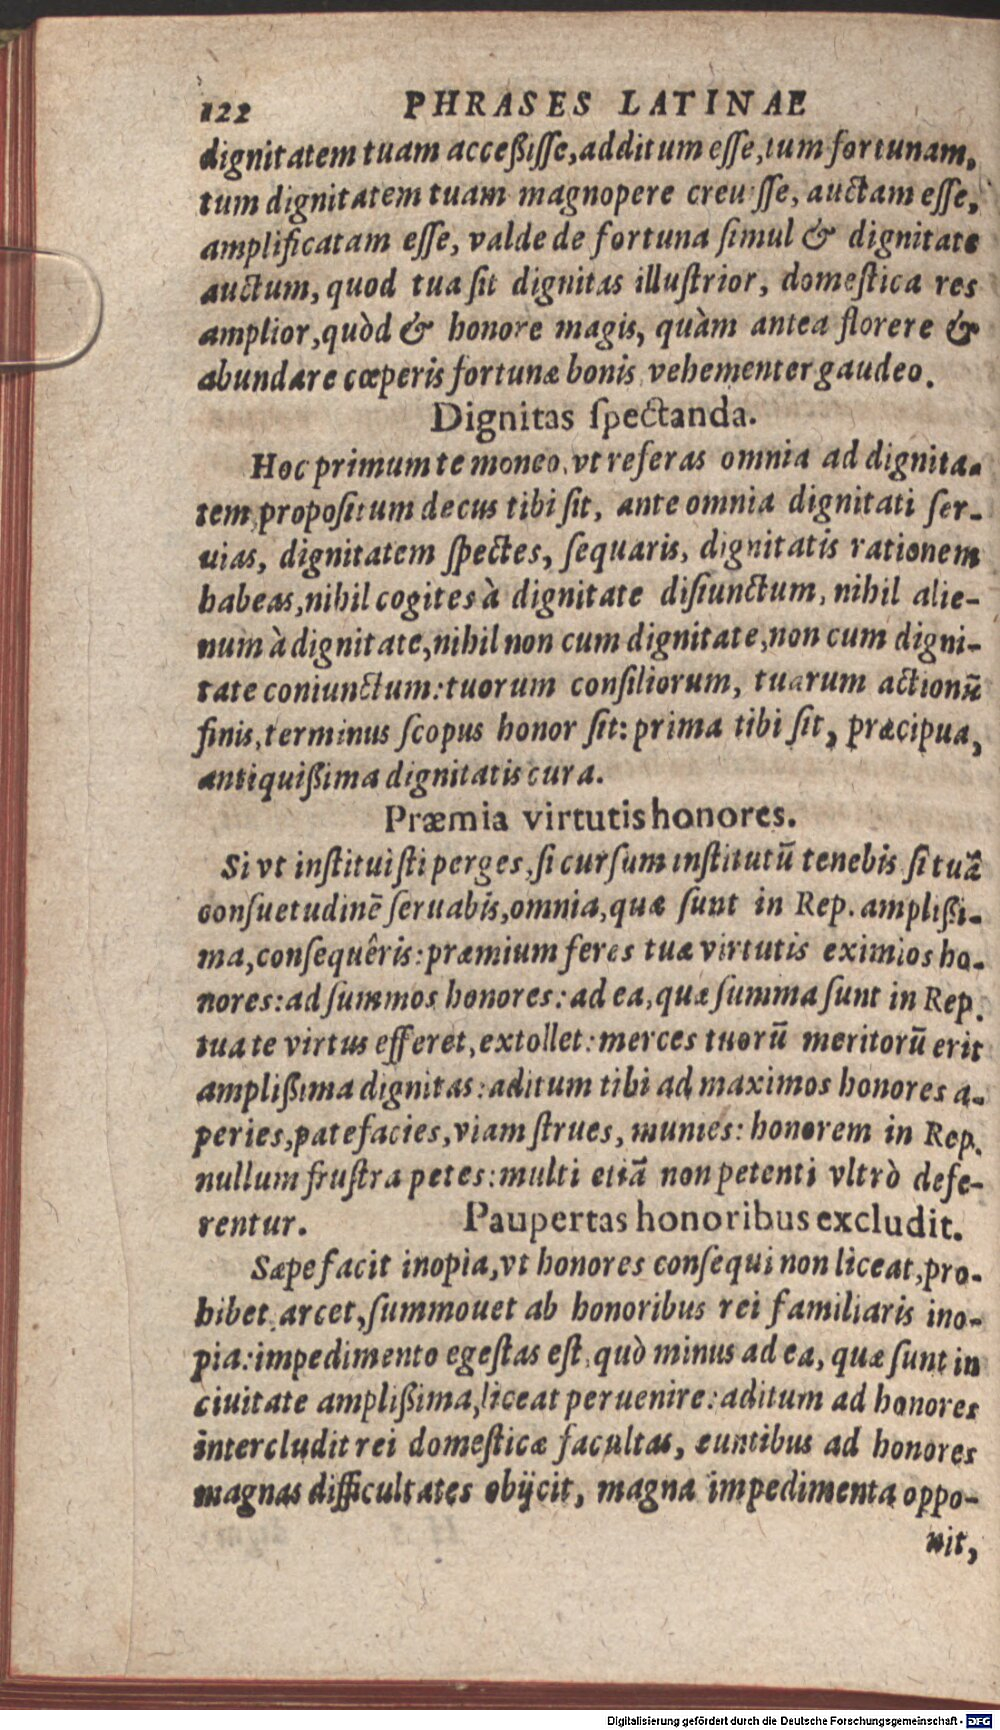 122 PHRASES LATINAE
dignitatem tuam acceßiſſe, additum eſſe, tum fortunam,
tum dignitatem tuam magnopere creuiſſe, auctam eſſe,
amplificatam eſſe, valde de fortuna ſimul & dignitate
auctum, quod tua ſit dignitas illuſtrior, domeſtica res
amplior, quòd & honore magis, quàm antea florere &
abundare cœperis fortunæ bonis vehementer gaudeo.
Dignitas ſpectanda.
Hoc primum te moneo, vt referas omnia ad dignita-
tem propoſitum decus tibi ſit, ante omnia dignitati ſer-
uias, dignitatem ſpectes, ſequaris, dignitatis rationem
habeas, nihil cogites à dignitate diſiunctum, nihil alie-
num à dignitate, nihil non cum dignitate, non cum digni-
tate coniunctum: tuorum conſiliorum, tuarum actionū
finis, terminus ſcopus honor ſit: prima tibi ſit, præcipua,
antiquißima dignitatis cura.
Præmia virtutis honores.
Si vt inſtituiſti perges, ſi curſum inſtitutū tenebis ſi tuā
conſuetudinē ſeruabis, omnia, quæ ſunt in Rep. amplißi-
ma, conſequêris: præmium feres tuæ virtutis eximios ho-
nores: ad ſummos honores: ad ea, quæ ſumma ſunt in Rep.
tua te virtus efferet, extollet: merces tuorū meritorū erit
amplißima dignitas: aditum tibi ad maximos honores a-
peries, patefacies, viam ſtrues, munies: honorem in Rep.
nullum fruſtra petes: multi etiā non petenti vltrò defe-
rentur. Paupertas honoribus excludit.
Sæpe facit inopia, vt honores conſequi non liceat, pro-
hibet, arcet, ſummouet ab honoribus rei familiaris ino-
pia: impedimento egeſtas eſt quò minus ad ea, quæ ſunt in
ciuitate amplißima, liceat peruenire: aditum ad honores
intercludit rei domeſticæ facultas, euntibus ad honores
magnas difficultates obijcit, magna impedimenta oppo-
nit,
Digitalisierung gefördert durch die Deutsche Forschungsgemeinschaft - DFG